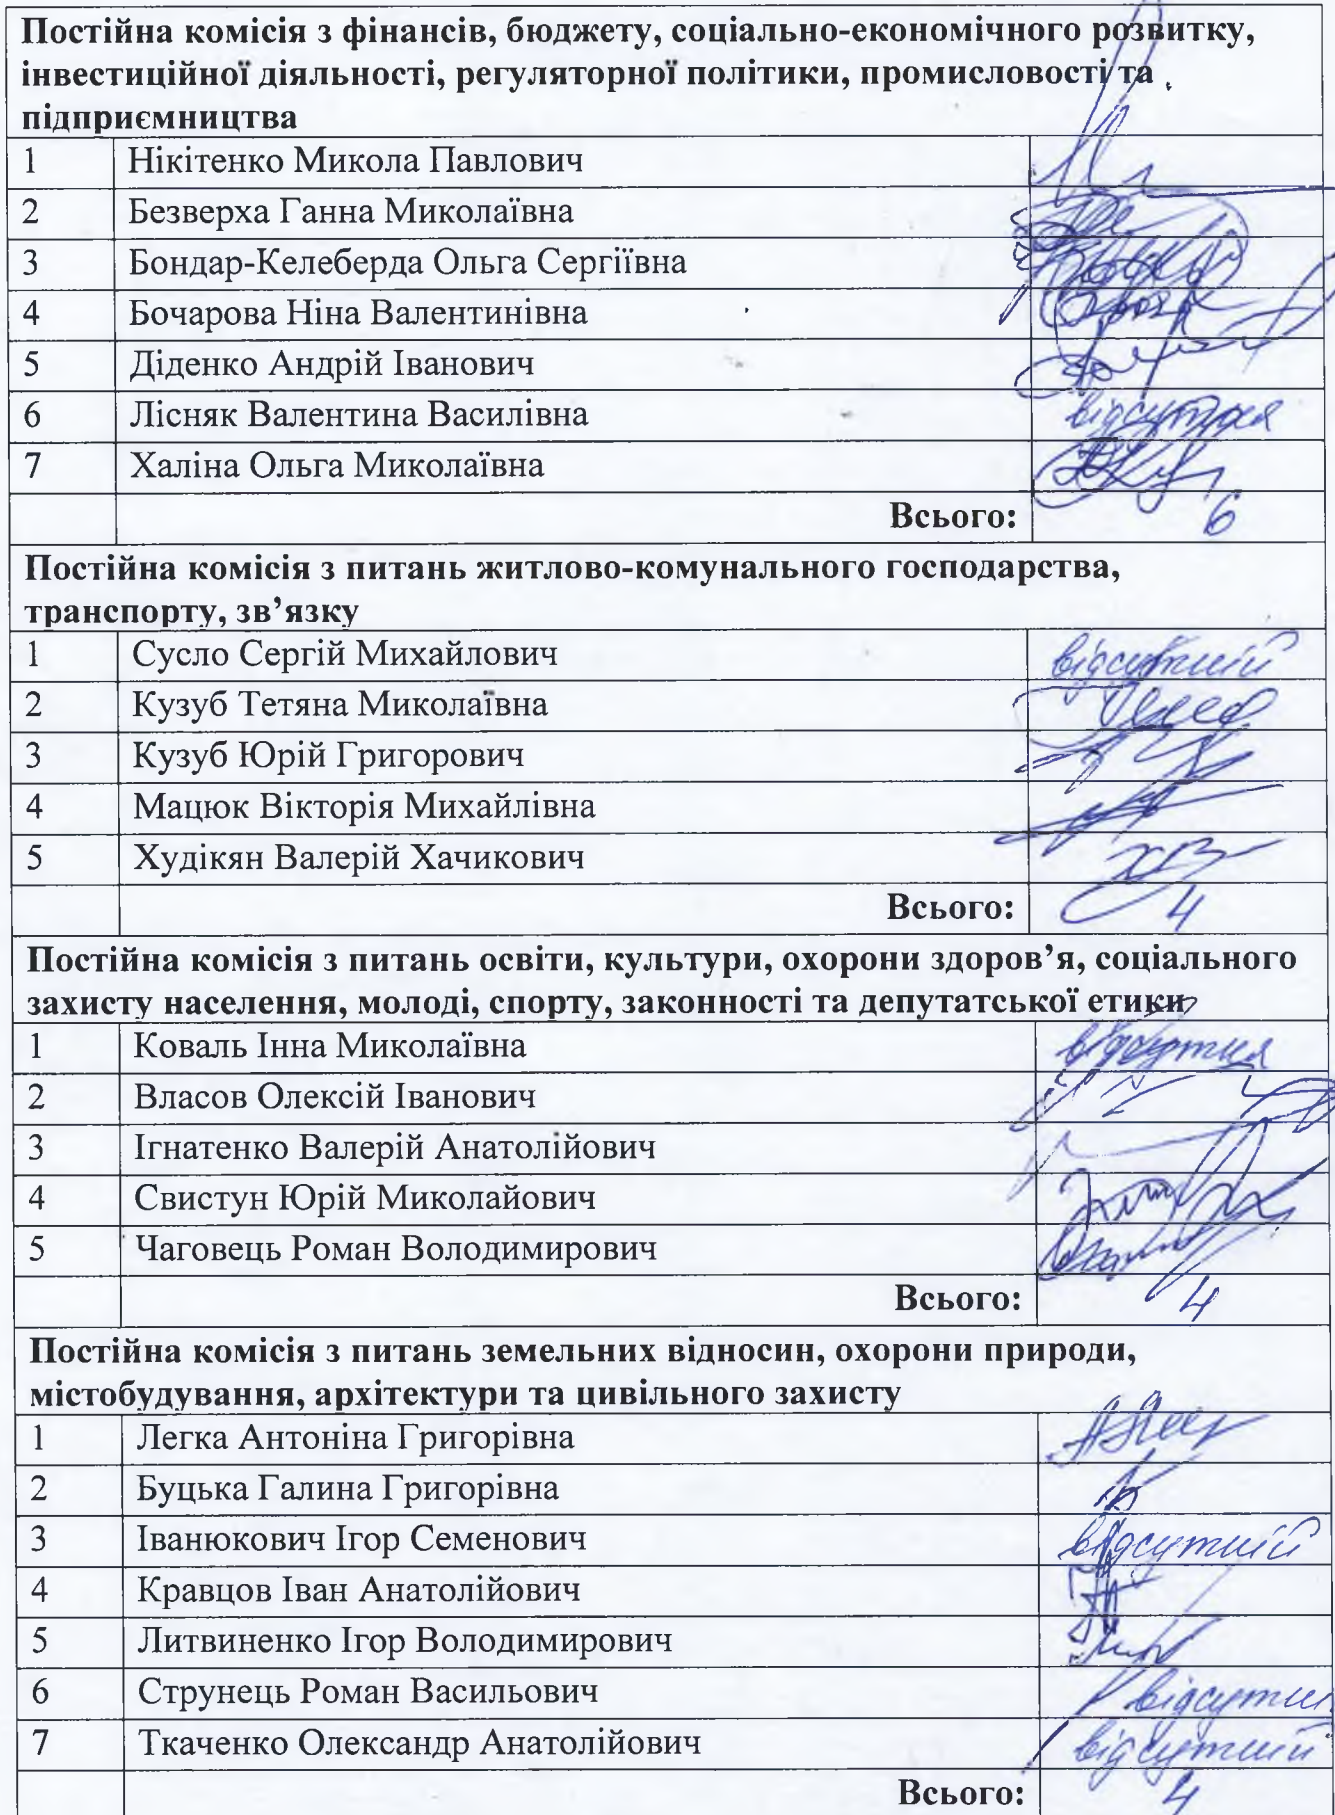 Постійна комісія з фінансів, бюджету, соціально-економічного розвитку,
інвестиційної діяльності, регуляторної політики, промисловості та
підприємництва
1 Нікітенко Микола Павлович
2 Безверха Ганна Миколаївна
3 Бондар-Келеберда Ольга Сергіївна
4 Бочарова Ніна Валентинівна
5 Діденко Андрій Іванович
6 Лісняк Валентина Василівна відсутня
7 Халіна Ольга Миколаївна
Всього: 6
Постійна комісія з питань житлово-комунального господарства,
транспорту, зв’язку
1 Сусло Сергій Михайлович відсутній
2 Кузуб Тетяна Миколаївна
3 Кузуб Юрій Григорович
4 Мацюк Вікторія Михайлівна
5 Худікян Валерій Хачикович
Всього: 4
Постійна комісія з питань освіти, культури, охорони здоров’я, соціального
захисту населення, молоді, спорту, законності та депутатської етики
1 Коваль Інна Миколаївна відсутня
2 Власов Олексій Іванович
3 Ігнатенко Валерій Анатолійович
4 Свистун Юрій Миколайович
5 Чаговець Роман Володимирович
Всього: 4
Постійна комісія з питань земельних відносин, охорони природи,
містобудування, архітектури та цивільного захисту
1 Легка Антоніна Григорівна
2 Буцька Галина Григорівна
3 Іванюкович Ігор Семенович відсутній
4 Кравцов Іван Анатолійович
5 Литвиненко Ігор Володимирович
6 Струнець Роман Васильович
7 Ткаченко Олександр Анатолійович відсутній
Всього: 4